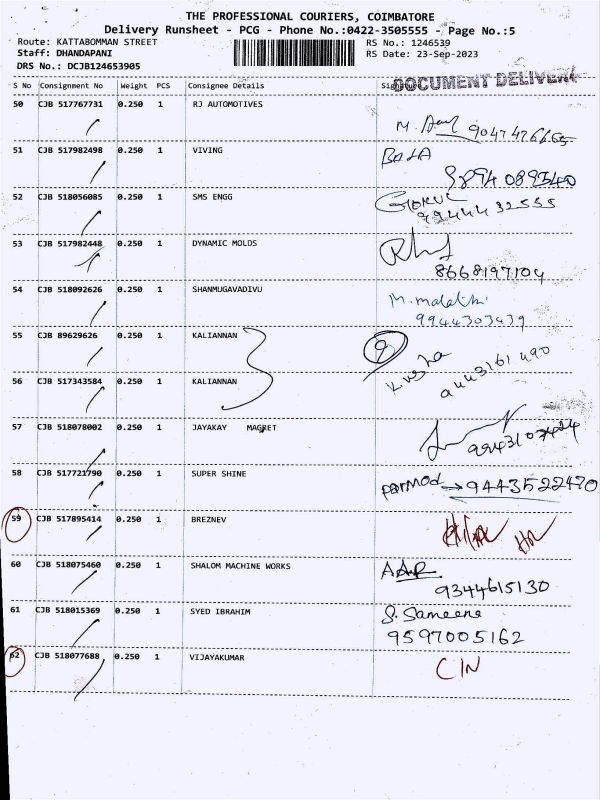 THE PROFESSIONAL COURIERS, COIMBATORE
Delivery Runsheet - PCG - Phone No.:0422-3505555 - Page No.:5
Route: KATTABOMMAN STREET RS No.: 1246539
Staff: DHANDAPANI RS Date: 23-Sep-2023
DRS No.: DCJB124653905
DOCUMENT DELIVERY
S No Consignment No Weight PCS Consignee Details
50 CJB 517767731 0.250 1 RJ AUTOMOTIVES
M.
51 CJB 517982498 0.250 1 VIVING BALA
9894089340
52 CJB 518056085 0.250 1 SMS ENGG GOKUL
9944432555
53 CJB 517982448 0.250 1 DYNAMIC MOLDS
8668197104
54 CJB 518092626 0.250 1 SHANMUGAVADIVU M. malathi
9944303439
55 CJB 89629626 0.250 1 KALIANNAN 9
56 CJB 517343584 0.250 1 KALIANNAN 9443161490
57 CJB 518078002 0.250 1 JAYAKAY MAGRET
58 CJB 517721790 0.250 1 SUPER SHINE Parmod → 9443522470
59 CJB 517895414 0.250 1 BREZNEV
60 CJB 518075460 0.250 1 SHALOM MACHINE WORKS
9344615130
61 CJB 518015369 0.250 1 SYED IBRAHIM S. Sameena
9597005162
62 CJB 518077688 0.250 1 VIJAYAKUMAR CIN